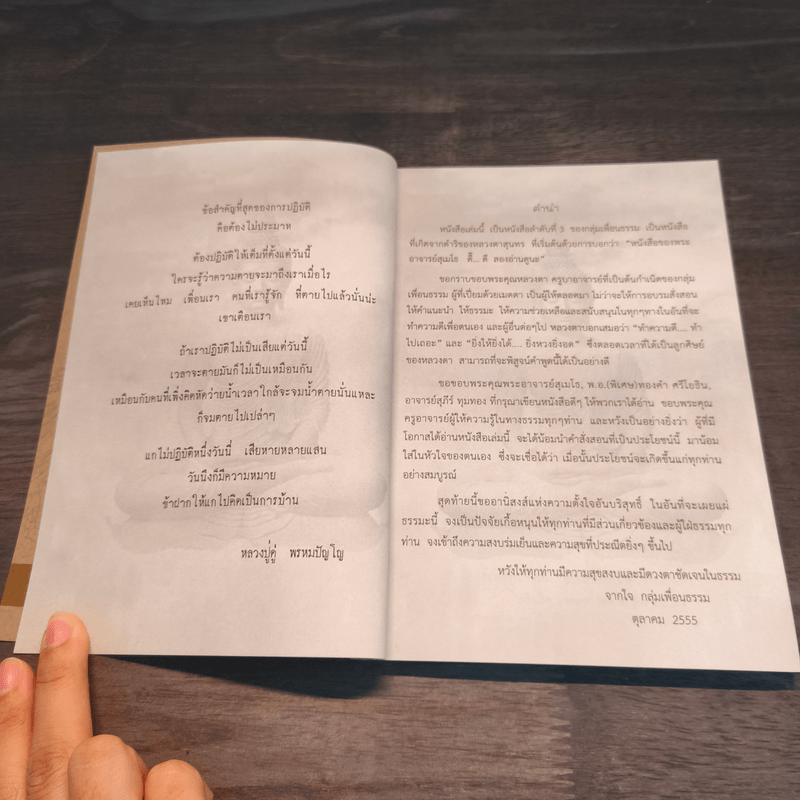 ข้อสำคัญที่สุดของการปฏิบัติ
คือต้องไม่ประมาท
ต้องปฏิบัติให้เต็มที่ตั้งแต่วันนี้
ใครจะรู้ว่าความตายจะมาถึงเราเมื่อไร
เคยเห็นไหม เพื่อนเรา คนที่เรารู้จัก ที่ตายไปแล้วนั่นน่ะ
เขาเตือนเรา
ถ้าเราปฏิบัติไม่เป็นเสียแต่วันนี้
เวลาจะตายมันก็ไม่เป็นเหมือนกัน
เหมือนกับคนที่เพิ่งคิดหัดว่ายน้ำเวลาใกล้จะจมน้ำตายนั่นแหละ
ก็จมตายไปเปล่าๆ
แกไม่ปฏิบัติหนึ่งวันนี่ เสียหายหลายแสน
วันนึงก็มีความหมาย
ข้าฝากให้แกไปคิดเป็นการบ้าน
หลวงปู่ดู่ พรหมปัญโญ
คำนำ
หนังสือเล่มนี้ เป็นหนังสือลำดับที่ 3 ของกลุ่มเพื่อนธรรม เป็นหนังสือ
ที่เกิดจากดำริของหลวงตาสุนทร ที่เริ่มต้นด้วยการบอกว่า "หนังสือของพระ
อาจารย์สุเมโธ ดี๊... ดี ลองอ่านดูนะ"
ขอกราบขอบพระคุณหลวงตา ครูบาอาจารย์ที่เป็นต้นกำเนิดของกลุ่ม
เพื่อนธรรม ผู้ที่เปี่ยมด้วยเมตตา เป็นผู้ให้ตลอดมา ไม่ว่าจะให้การอบรมสั่งสอน
ให้คำแนะนำ ให้ธรรมะ ให้ความช่วยเหลือและสนับสนุนในทุกๆทางในอันที่จะ
ทำความดีเพื่อตนเอง และผู้อื่นต่อๆไป หลวงตาบอกเสมอว่า "ทำความดี.... ทำ
ไปเถอะ" และ "ยิ่งให้ยิ่งได้.... ยิ่งหวงยิ่งอด" ซึ่งตลอดเวลาที่ได้เป็นลูกศิษย์
ของหลวงตา สามารถที่จะพิสูจน์คำพูดนี้ได้เป็นอย่างดี
ขอขอบพระคุณพระอาจารย์สุเมโธ, พ.อ.(พิเศษ)ทองคำ ศรีโยธิน,
อาจารย์สุภีร์ ทุมทอง ที่กรุณาเขียนหนังสือดีๆ ให้พวกเราได้อ่าน ขอบพระคุณ
ครูอาจารย์ผู้ให้ความรู้ในทางธรรมทุกๆท่าน และหวังเป็นอย่างยิ่งว่า ผู้ที่มี
โอกาสได้อ่านหนังสือเล่มนี้ จะได้น้อมนำคำสั่งสอนที่เป็นประโยชน์นี้ มาน้อม
ใส่ในหัวใจของตนเอง ซึ่งจะเชื่อได้ว่า เมื่อนั้นประโยชน์จะเกิดขึ้นแก่ทุกท่าน
อย่างสมบูรณ์
สุดท้ายนี้ขออานิสงส์แห่งความตั้งใจอันบริสุทธิ์ ในอันที่จะเผยแผ่
ธรรมะนี้ จงเป็นปัจจัยเกื้อหนุนให้ทุกท่านที่มีส่วนเกี่ยวข้องและผู้ใฝ่ธรรมทุก
ท่าน จงเข้าถึงความสงบร่มเย็นและความสุขที่ประณีตยิ่งๆ ขึ้นไป
หวังให้ทุกท่านมีความสุขสงบและมีดวงตาชัดเจนในธรรม
จากใจ กลุ่มเพื่อนธรรม
ตุลาคม 2555